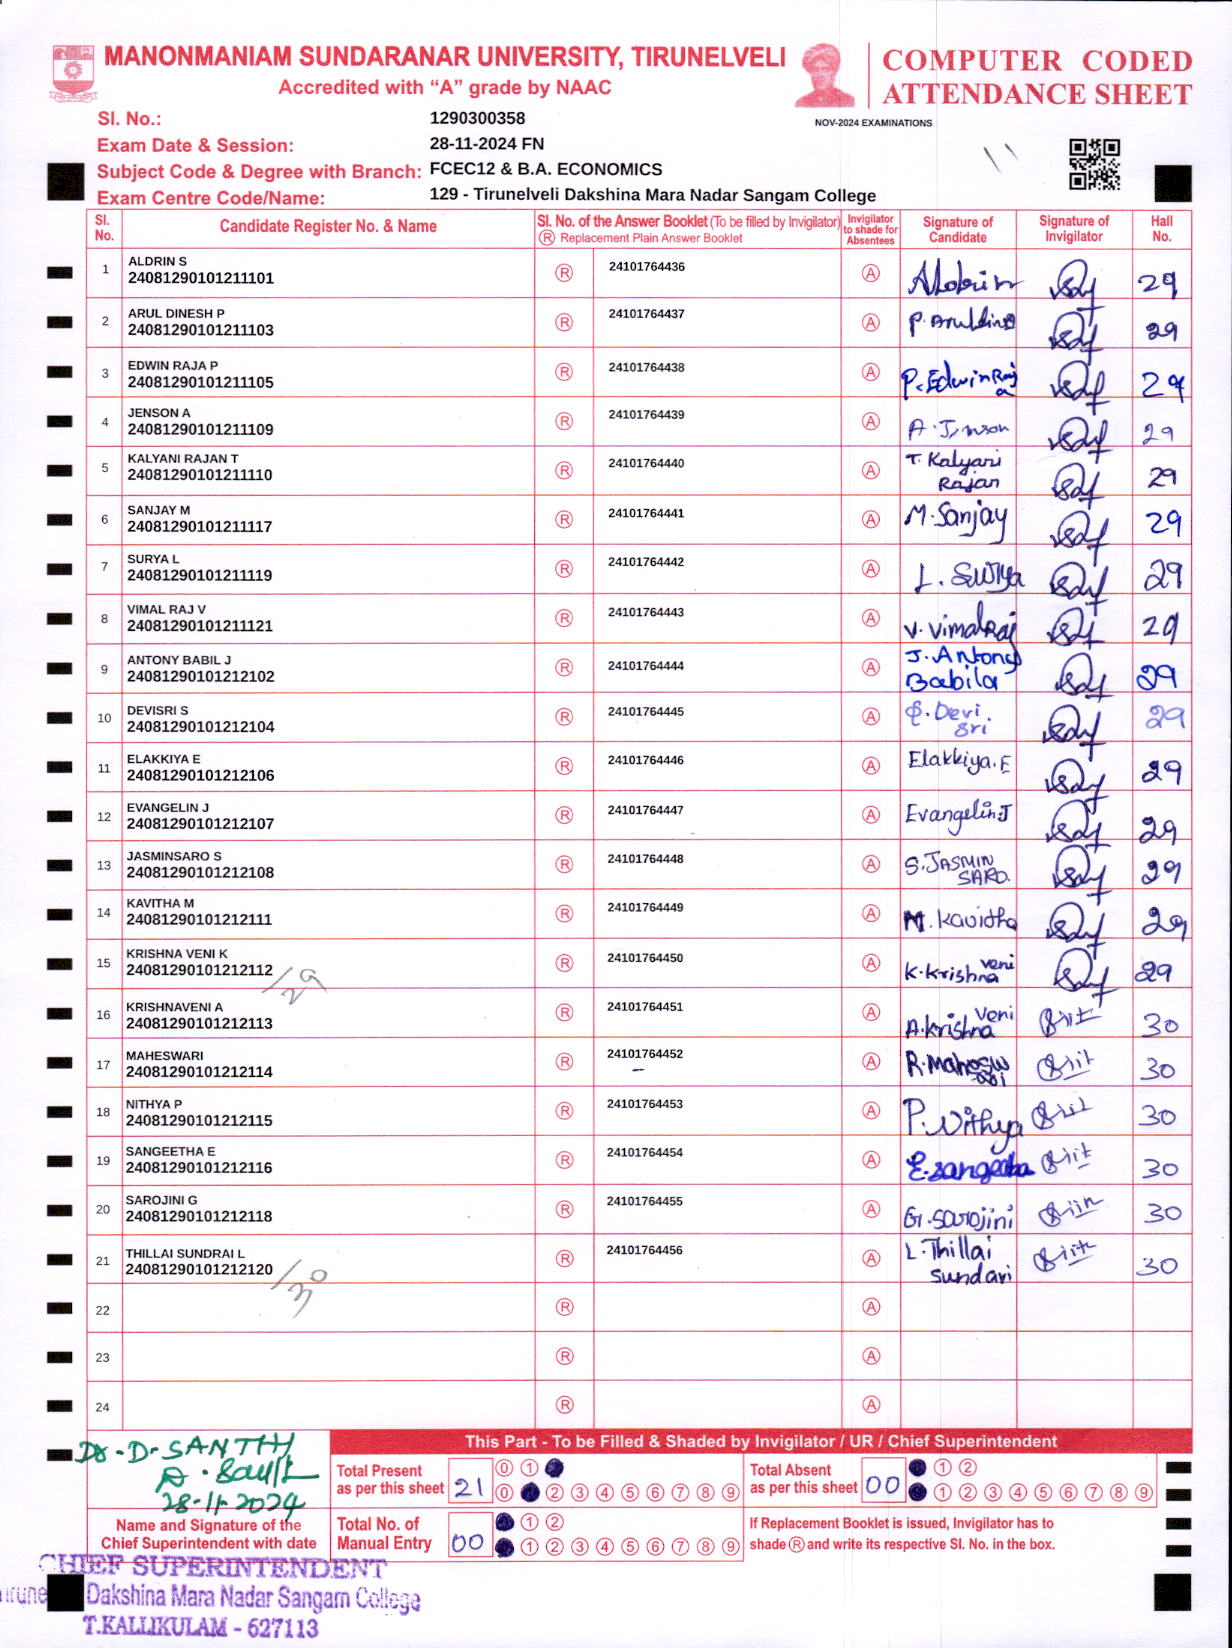 MANONMANIAM SUNDARANAR UNIVERSITY, TIRUNELVELI
Accredited with “A” grade by NAAC
COMPUTER CODED
ATTENDANCE SHEET
NOV-2024 EXAMINATIONS
Sl. No.: 1290300358
Exam Date & Session: 28-11-2024 FN
Subject Code & Degree with Branch: FCEC12 & B.A. ECONOMICS
Exam Centre Code/Name: 129 - Tirunelveli Dakshina Mara Nadar Sangam College
11
Sl. No. Candidate Register No. & Name Sl. No. of the Answer Booklet (To be filled by Invigilator) Ⓡ Replacement Plain Answer Booklet Invigilator to shade for Absentees Signature of Candidate Signature of Invigilator Hall No.
1 ALDRIN S 24081290101211101 Ⓡ 24101764436 Ⓐ Aldrin 29
2 ARUL DINESH P 24081290101211103 Ⓡ 24101764437 Ⓐ P. Aruldins 29
3 EDWIN RAJA P 24081290101211105 Ⓡ 24101764438 Ⓐ P. Edwin Raja 29
4 JENSON A 24081290101211109 Ⓡ 24101764439 Ⓐ A. Jenson 29
5 KALYANI RAJAN T 24081290101211110 Ⓡ 24101764440 Ⓐ T. Kalyani Rajan 29
6 SANJAY M 24081290101211117 Ⓡ 24101764441 Ⓐ M. Sanjay 29
7 SURYA L 24081290101211119 Ⓡ 24101764442 Ⓐ L. Surya 29
8 VIMAL RAJ V 24081290101211121 Ⓡ 24101764443 Ⓐ V. VimalRaj 29
9 ANTONY BABIL J 24081290101212102 Ⓡ 24101764444 Ⓐ J. Antony Babila 29
10 DEVISRI S 24081290101212104 Ⓡ 24101764445 Ⓐ S. Devi Sri 29
11 ELAKKIYA E 24081290101212106 Ⓡ 24101764446 Ⓐ Elakkiya. E 29
12 EVANGELIN J 24081290101212107 Ⓡ 24101764447 Ⓐ Evangelin J 29
13 JASMINSARO S 24081290101212108 Ⓡ 24101764448 Ⓐ S. JASMIN SARO. 29
14 KAVITHA M 24081290101212111 Ⓡ 24101764449 Ⓐ M. Kavitha 29
15 KRISHNA VENI K 24081290101212112 /29 Ⓡ 24101764450 Ⓐ K. Krishna veni 29
16 KRISHNAVENI A 24081290101212113 Ⓡ 24101764451 Ⓐ A. krishna veni 30
17 MAHESWARI 24081290101212114 Ⓡ 24101764452 Ⓐ R. Maheswari 30
18 NITHYA P 24081290101212115 Ⓡ 24101764453 Ⓐ P. Nithya 30
19 SANGEETHA E 24081290101212116 Ⓡ 24101764454 Ⓐ E. sangeetha 30
20 SAROJINI G 24081290101212118 Ⓡ 24101764455 Ⓐ G. Sarojini 30
21 THILLAI SUNDRAI L 24081290101212120 /30 Ⓡ 24101764456 Ⓐ L. Thillai Sundari 30
22 Ⓡ Ⓐ
23 Ⓡ Ⓐ
24 Ⓡ Ⓐ
Dr. D. SANTHI
28-11-2024
Name and Signature of the
Chief Superintendent with date
This Part - To be Filled & Shaded by Invigilator / UR / Chief Superintendent
Total Present as per this sheet 21
0 1
0 2 3 4 5 6 7 8 9
Total Absent as per this sheet 00
1 2
1 2 3 4 5 6 7 8 9
Total No. of Manual Entry 00
1 2
1 2 3 4 5 6 7 8 9
If Replacement Booklet is issued, Invigilator has to
shade Ⓡ and write its respective Sl. No. in the box.
CHIEF SUPERINTENDENT
Dakshina Mara Nadar Sangam College
T.KALLIKULAM - 627113